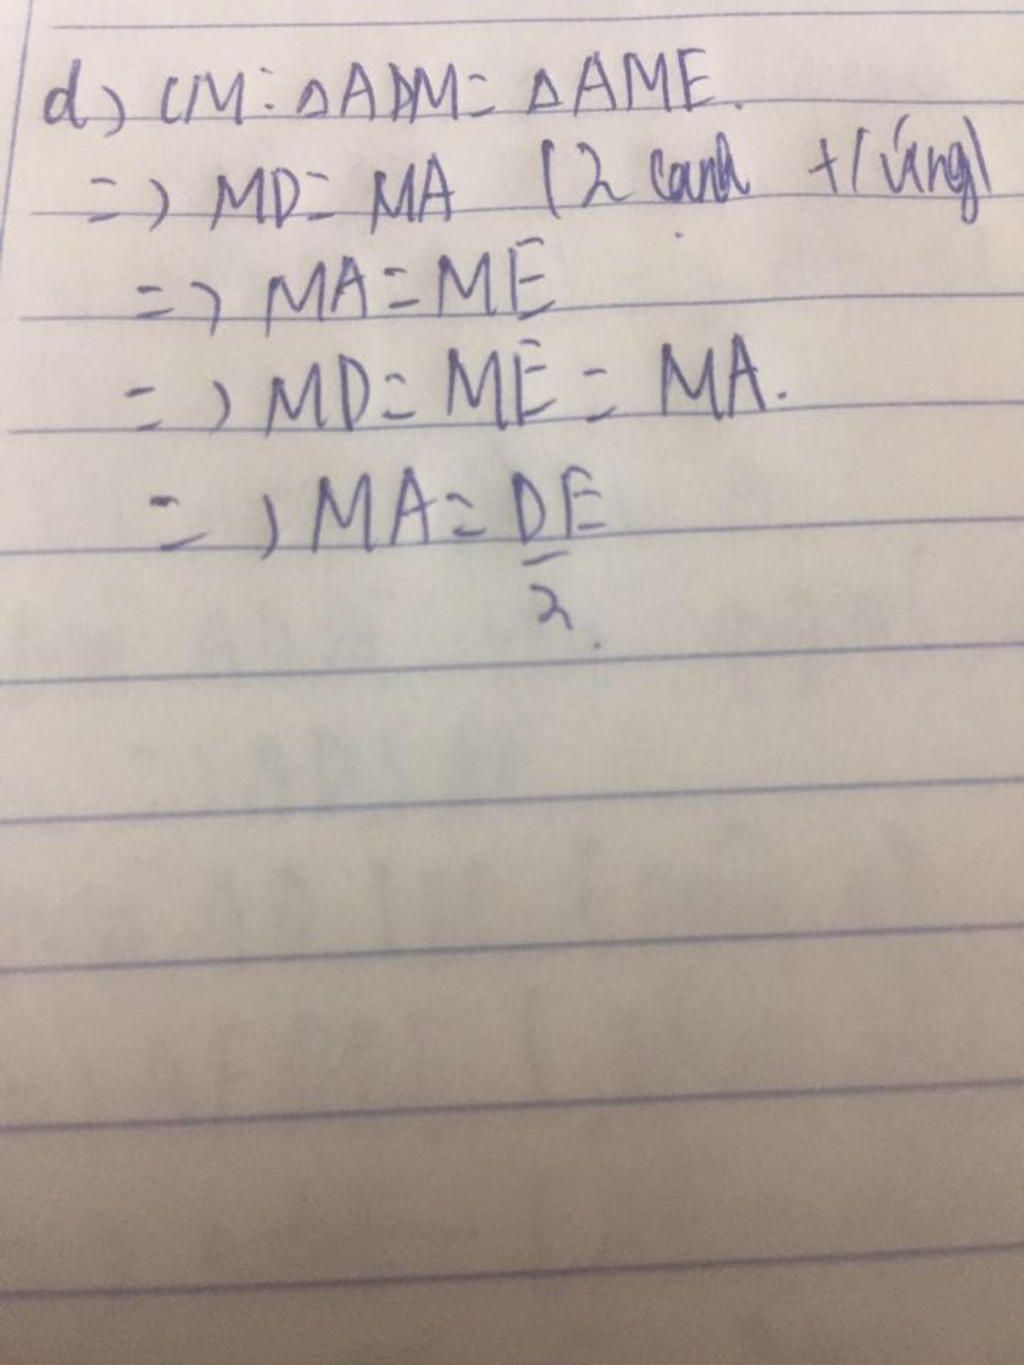 d) CM: ΔADM = ΔAME.
=> MD = MA (2 cạnh t/ứng)
=> MA = ME
=> MD = ME = MA.
=> MA = DE
2.